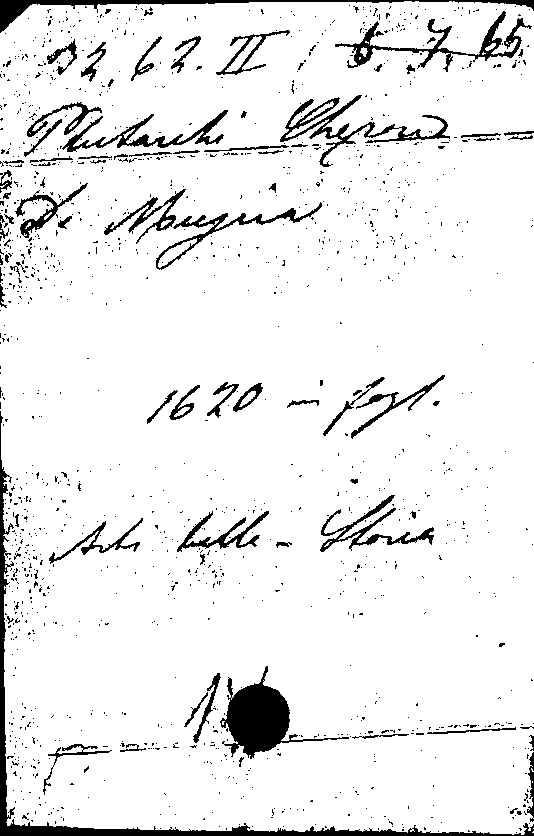 32. 62. II / 6. 7. 65
Plutarchi Cheron.
De Musica
1620 in fogl.
Arti belle - Storia